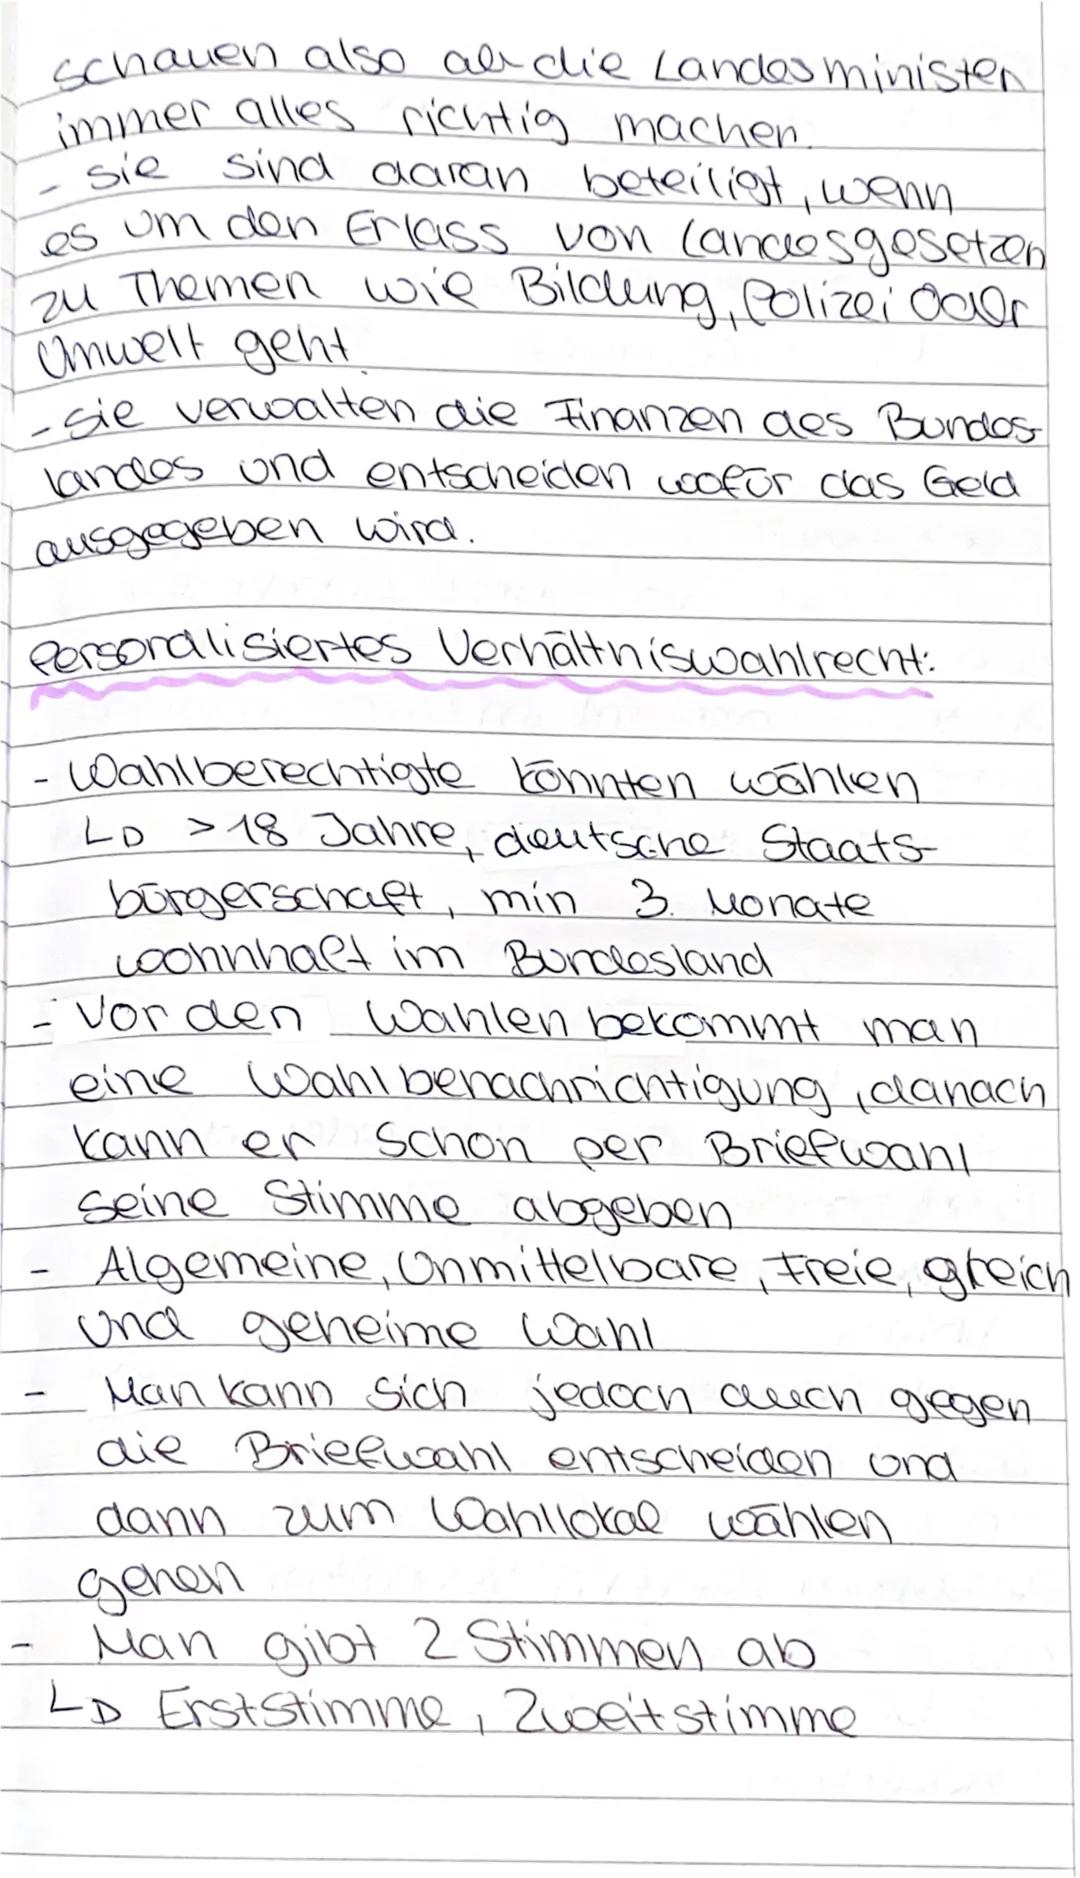 schauen also ob die Landesminister
immer alles richtig machen.
- sie sind daran beteiligt, wenn
es um den Erlass von Landesgesetzen
zu Themen wie Bildung, Polizei oder
Umwelt geht
- sie verwalten die Finanzen des Bundes-
landes und entscheiden wofür das Geld
ausgegeben wird.
Personalisiertes Verhältniswahlrecht:
- Wahlberechtigte könnten wählen
↳ >18 Jahre, deutsche Staats-
bürgerschaft, min 3. Monate
wohnhaft im Bundesland
- Vor den Wahlen bekommt man
eine Wahlbenachrichtigung, danach
kann er schon per Briefwahl
seine Stimme abgeben
- Algemeine, Unmittelbare, Freie, gleich
und geheime Wahl
- Man kann sich jedoch auch gegen
die Briefwahl entscheiden und
dann zum Wahllokal wählen
gehen
- Man gibt 2 Stimmen ab
↳ Erststimme, Zweitstimme